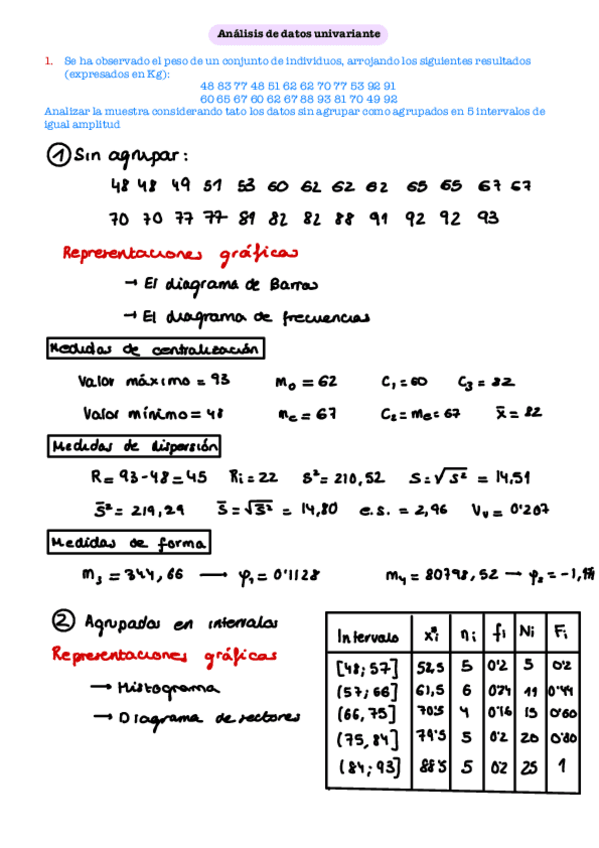 Análisis de datos univariante
1. Se ha observado el peso de un conjunto de individuos, arrojando los siguientes resultados
(expresados en Kg):
48 83 77 48 51 62 62 70 77 53 92 91
60 65 67 60 62 67 88 93 81 70 49 92
Analizar la muestra considerando tato los datos sin agrupar como agrupados en 5 intervalos de
igual amplitud
① Sin agrupar:
48 48 49 51 53 60 62 62 62 65 65 67 67
70 70 77 77 81 82 82 88 91 92 92 93
Representaciones gráficas
→ El diagrama de Barras
→ El diagrama de frecuencias
Medidas de centralización
Valor máximo = 93 Mo = 62 C₁ = 60 C₃ = 82
Valor mínimo = 48 Me = 67 C₂ = Me = 67 x̄ = 82
Medidas de dispersión
R = 93 - 48 = 45 Ri = 22 S² = 210,52 S = √S² = 14,51
S̄² = 219,29 S̄ = √S̄² = 14,80 e.s. = 2,96 Vv = 0'207
Medidas de forma
m₃ = 344,66 → φ₁ = 0'1128 m₄ = 80798,52 → φ₂ = -1,
② Agrupados en intervalos
Representaciones gráficas
→ Histograma
→ Diagrama de sectores
Intervalo xᵢ nᵢ fi Ni Fi
[48; 57] 52,5 5 0'2 5 0'2
(57; 66] 61,5 6 0'24 11 0'44
(66, 75] 70'5 4 0'16 15 0'60
(75, 84] 79'5 5 0'2 20 0'80
(84; 93] 88'5 5 0'2 25 1